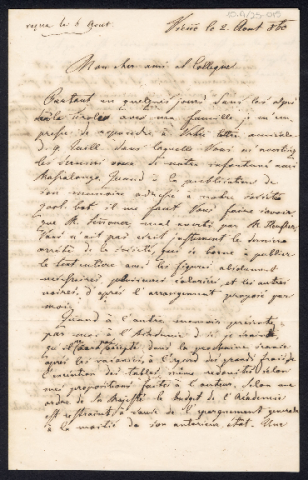 reçue le 6 Aout
Vienne le 2. Aout 860
Mon cher ami et Collegue
Partant en quelques jours dans les alpes
de le Tirolo avec ma famille je m'em-
presse de repondre à Votre lettre amicale
de 9 Juill. dans laquelle Vous m'
les sur notre infortuné ami
Quand à la publication de
son memoire adressé à notre societé
zool. bot. il me faut Vous faire savoir
que M. Senoner, mal averti par M.
Vous n'ait pas ecrit justement la derniere
arrêté de la Societé, qui se borne à publier
le text entière avec les figures absolument
necessaires, plusieurs coloriées et les autres
noires, d'après l'arrangement proposé par
moi.
Quand à l'autre memoir presenté
par moi à l'Academie
qu'il accepté dans la prochaine seance
après les vacances, à l'egard des grands frais de
l' des tables, même reduites selon
mes propositions faites à l'auteur. Selon une
ordre de Sa Majesté le budget de l'Academie
est restraint à cause de l' generale
à la moitié de son anterieur état. Une